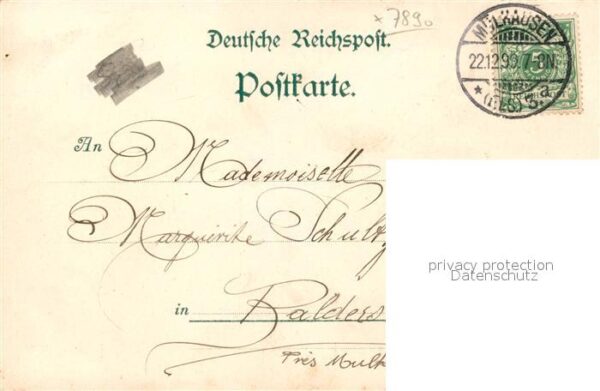 × 7890
Deutsche Reichspost.
Postkarte.
MÜLHAUSEN
22.12.99.7-8N.
* (ELS) 3.a
An Mademoiselle
Marguerite Schultz
privacy protection
Datenschutz
in Balders
Près Mulh